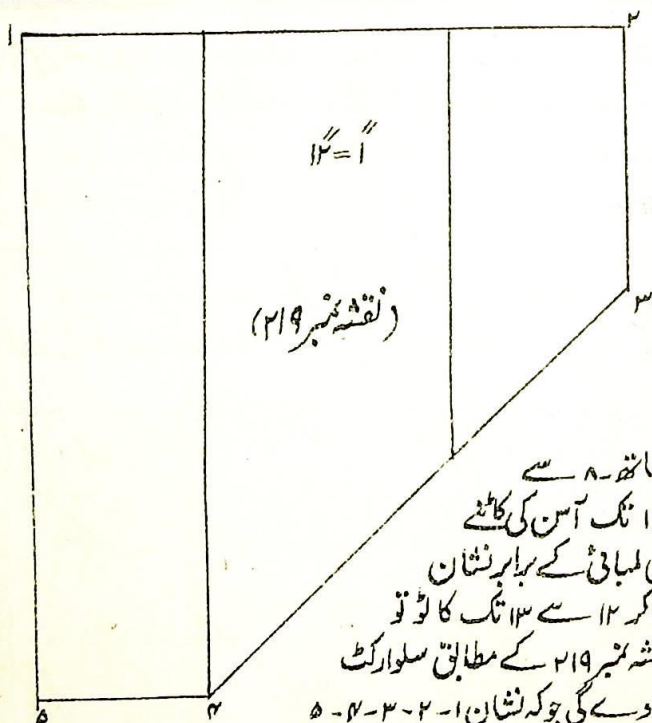 ۱
۲
۱۲″=۱″
(نقشہ نمبر ۲۱۹)
۳
ساتھ-۸ سے
تک آسن کی کاٹنے
لمبائی کے برابر نشان
کر ۱۲ سے ۱۳ تک کاٹو تو
نمبر ۲۱۹ کے مطابق سلوار کٹ
دے گی جو کہ نشان ۱-۲-۳-۴-۵
۴
۵